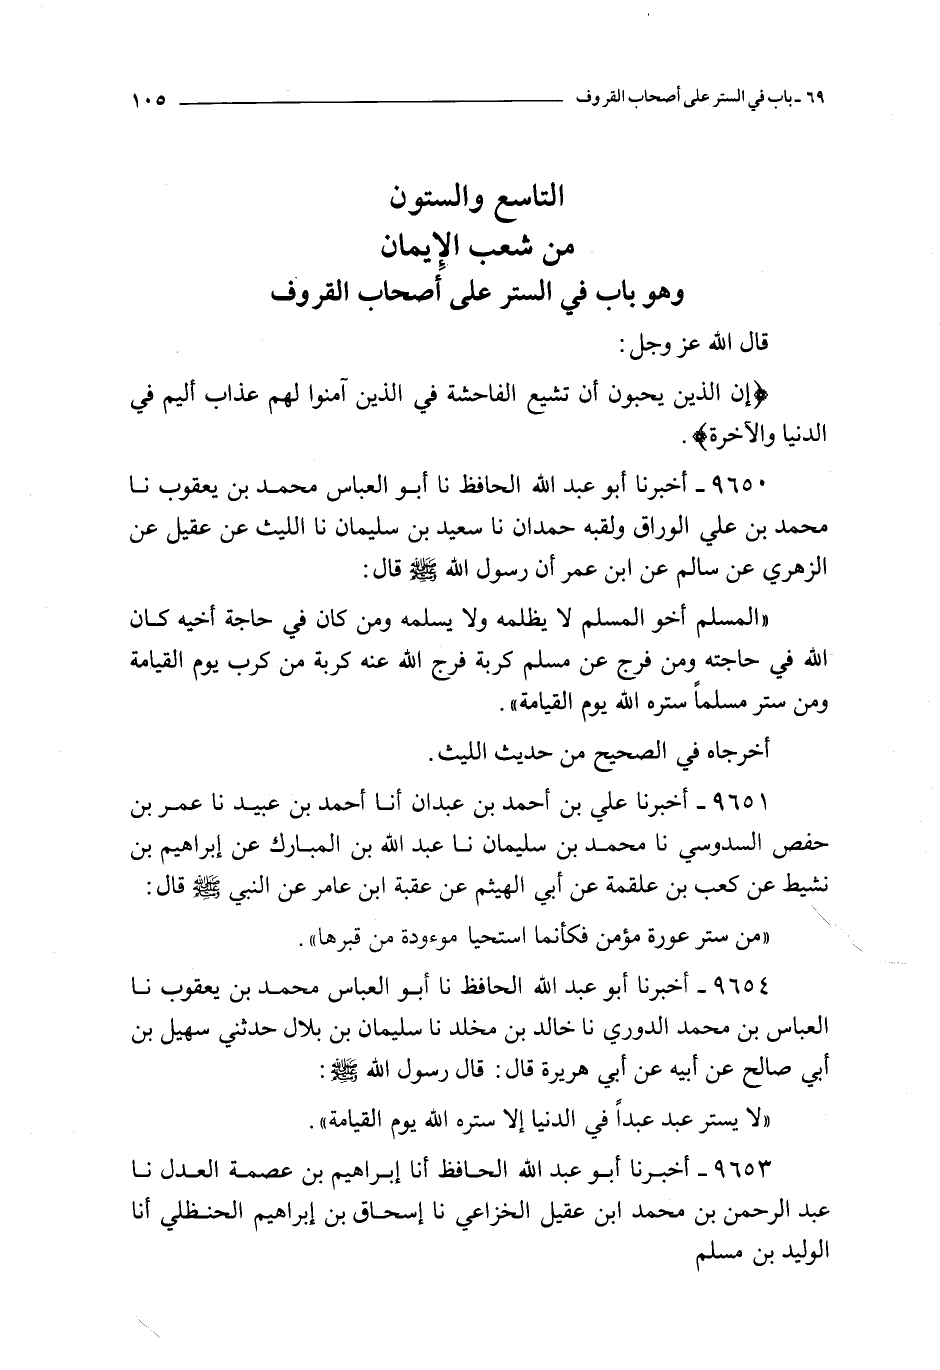 ٦٩ - باب في الستر على أصحاب القروف ١٠٥
التاسع والستون
من شعب الإيمان
وهو باب في الستر على أصحاب القروف
قال الله عز وجل:
﴿إن الذين يحبون أن تشيع الفاحشة في الذين آمنوا لهم عذاب أليم في
الدنيا والآخرة﴾.
٩٦٥٠ - أخبرنا أبو عبد الله الحافظ نا أبو العباس محمد بن يعقوب نا
محمد بن علي الوراق ولقبه حمدان نا سعيد بن سليمان نا الليث عن عقيل عن
الزهري عن سالم عن ابن عمر أن رسول الله ﷺ قال:
«المسلم أخو المسلم لا يظلمه ولا يسلمه ومن كان في حاجة أخيه كان
الله في حاجته ومن فرج عن مسلم كربة فرج الله عنه كربة من كرب يوم القيامة
ومن ستر مسلماً ستره الله يوم القيامة».
أخرجاه في الصحيح من حديث الليث.
٩٦٥١ - أخبرنا علي بن أحمد بن عبدان أنا أحمد بن عبيد نا عمر بن
حفص السدوسي نا محمد بن سليمان نا عبد الله بن المبارك عن إبراهيم بن
نشيط عن كعب بن علقمة عن أبي الهيثم عن عقبة ابن عامر عن النبي ﷺ قال:
«من ستر عورة مؤمن فكأنما استحيا موءودة من قبرها».
٩٦٥٤ - أخبرنا أبو عبد الله الحافظ نا أبو العباس محمد بن يعقوب نا
العباس بن محمد الدوري نا خالد بن مخلد نا سليمان بن بلال حدثني سهيل بن
أبي صالح عن أبيه عن أبي هريرة قال: قال رسول الله ﷺ:
«لا يستر عبد عبداً في الدنيا إلا ستره الله يوم القيامة».
٩٦٥٣ - أخبرنا أبو عبد الله الحافظ أنا إبراهيم بن عصمة العدل نا
عبد الرحمن بن محمد ابن عقيل الخزاعي نا إسحاق بن إبراهيم الحنظلي أنا
الوليد بن مسلم